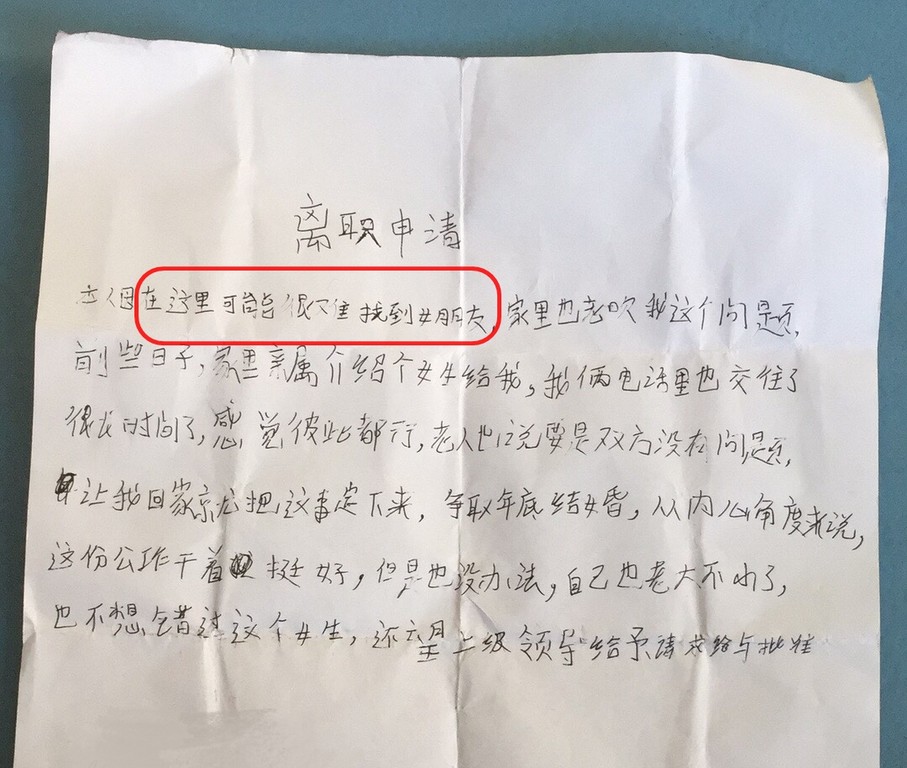 离职申请
在这里可能很难找到女朋友,家里也老吹我这个问题,
前些日子,家里亲属介绍个女生给我,我俩电话里也交往了
很长时间了,感觉彼此都行,老人也说要是双方没有问题,
让我回家就把这事定下来,争取年底结婚,从内心角度来说,
这份工作干着挺好,但是也没办法,自己也老大不小了,
也不想错过这个女生,还望上级领导给予请求给与批准